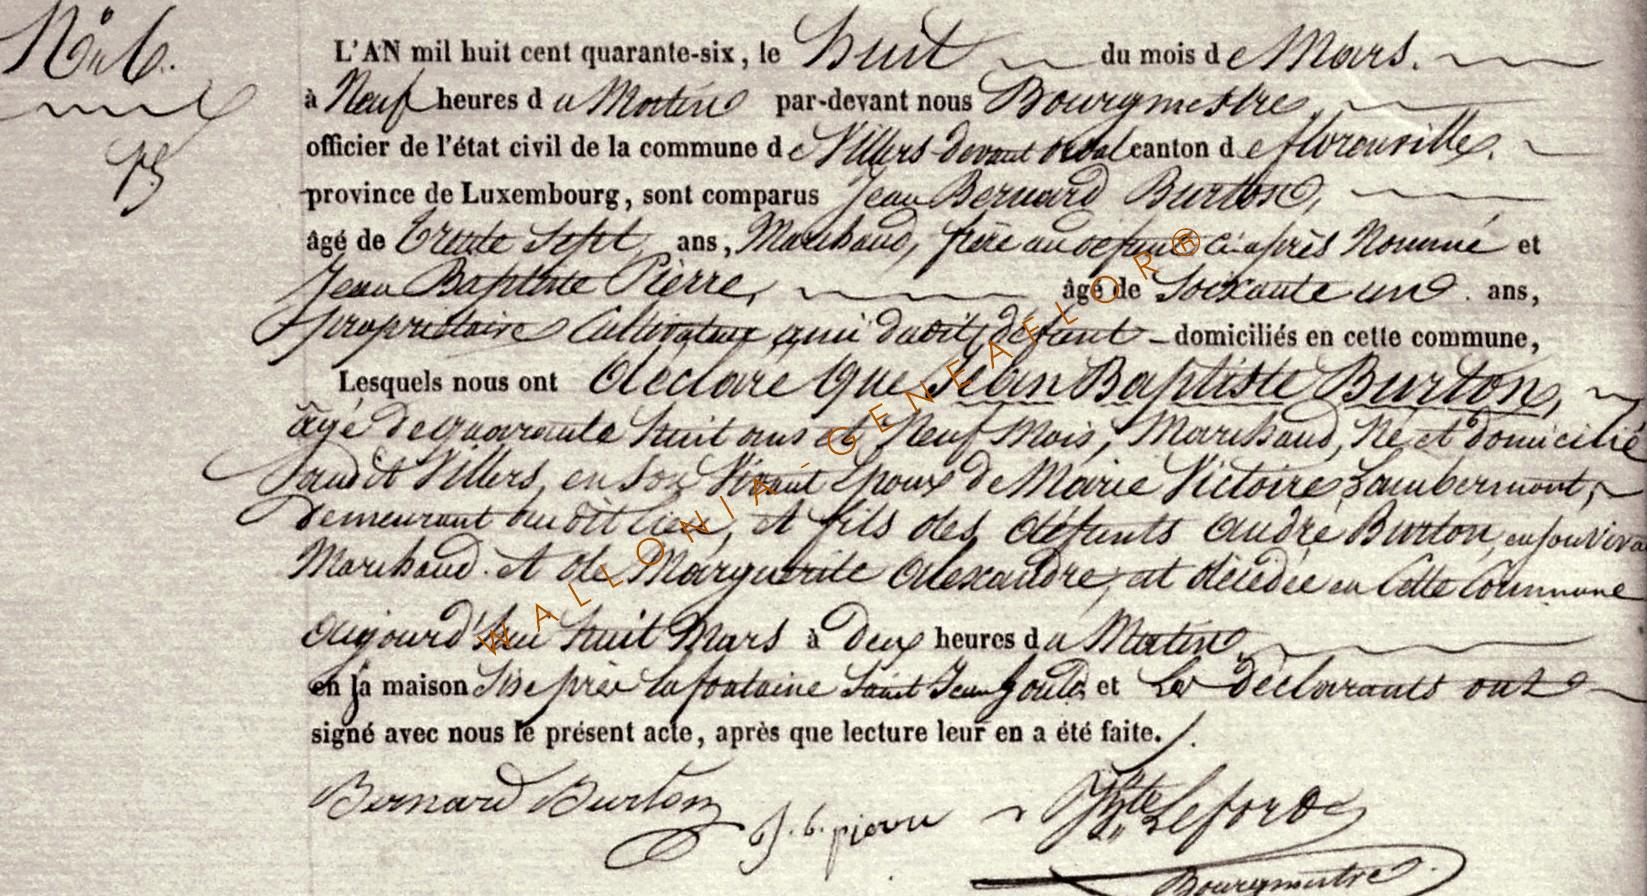 N° 6.
L'AN mil huit cent quarante-six, le huit du mois de Mars.
à Neuf heures du Matin par-devant nous Bourgmestre,
officier de l'état civil de la commune de Villers devant orval canton de florenville.
province de Luxembourg, sont comparus Jean Bernard Burton,
âgé de trente sept ans, Marchand, frère au défunt ci-après Nommé et
Jean Baptiste Pierre, âgé de Soixante un ans,
propriétaire Cultivateur ami dudit défunt domiciliés en cette commune,
Lesquels nous ont déclaré que Jean Baptiste Burton,
âgé de quarante huit ans et Neuf Mois, Marchand, Né et domicilié
audit Villers, en son Vivant Epoux de Marie Victoire Lambermont,
demeurant audit lieu, et fils des défunts André Burton, en son viva
Marchand. et de Marguerite Alexandre, est décédée en Cette Commune
aujourd'hui huit Mars à Deux heures du Matin,
en sa maison Sise près la fontaine Saint Jean et Les déclarants ont
signé avec nous le présent acte, après que lecture leur en a été faite.
Bernard Burton J. b. pierre Jn Bte Leford
Bourgmestre.
WALLONIA-GENEAFLOR®